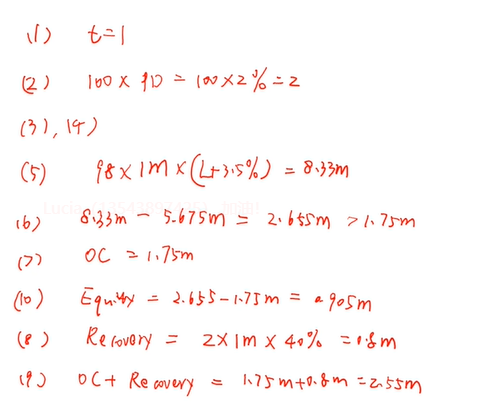 (1) t=1
(2) 100 × PD = 100 × 2% = 2
(3), (4)
(5) 98 × 1m × (L+3.5%) = 8.33m
(6) 8.33m - 5.675m = 2.655m > 1.75m
(7) OC = 1.75m
(10) Equity = 2.655-1.75m = 0.905m
(8) Recovery = 2×1m × 40% = 0.8m
(9) OC+ Recovery = 1.75m+0.8m=2.55m